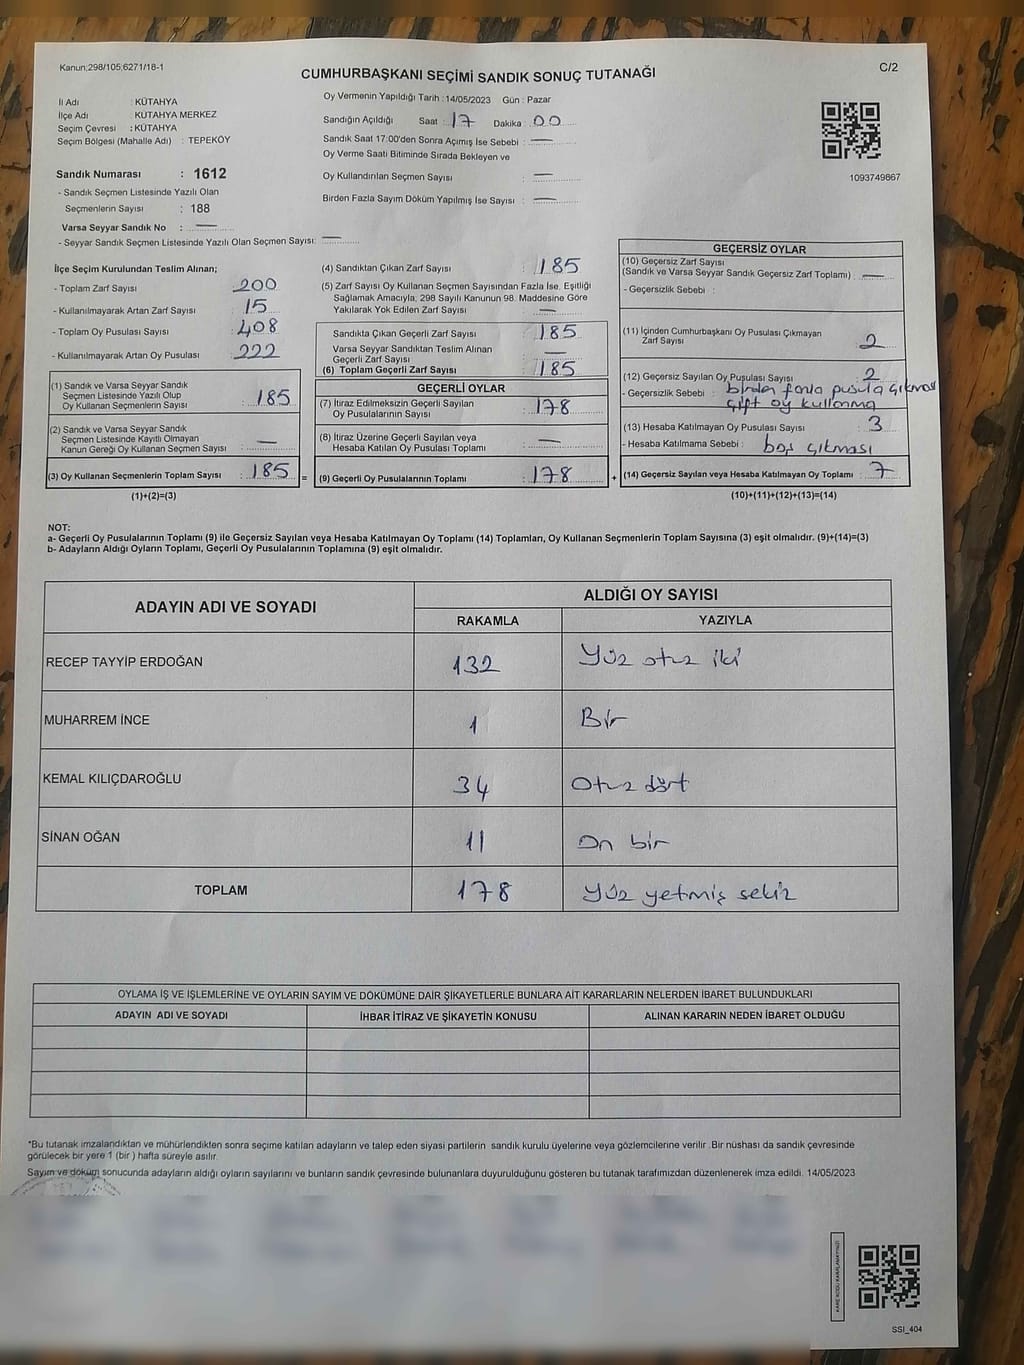 Kanun;298/105;6271/18-1
C/2
CUMHURBAŞKANI SEÇİMİ SANDIK SONUÇ TUTANAĞI
İl Adı : KÜTAHYA
İlçe Adı : KUTAHYA MERKEZ
Seçim Çevresi : KÜTAHYA
Seçim Bölgesi (Mahalle Adı) : TEPEKÖY
Sandık Numarası : 1612
- Sandık Seçmen Listesinde Yazılı Olan
Seçmenlerin Sayısı : 188
Varsa Seyyar Sandık No : —
- Seyyar Sandık Seçmen Listesinde Yazılı Olan Seçmen Sayısı: —
Oy Vermenin Yapıldığı Tarih : 14/05/2023 Gün : Pazar
Sandığın Açıldığı Saat : 17 Dakika : 00
Sandık Saat 17:00'den Sonra Açımış İse Sebebi : —
Oy Verme Saati Bitiminde Sırada Bekleyen ve
Oy Kullandırılan Seçmen Sayısı : —
Birden Fazla Sayım Döküm Yapılmış İse Sayısı : —
1093749867
İlçe Seçim Kurulundan Teslim Alınan;
- Toplam Zarf Sayısı : 200
- Kullanılmayarak Artan Zarf Sayısı : 15
- Toplam Oy Pusulası Sayısı : 408
- Kullanılmayarak Artan Oy Pusulası : 222
(1) Sandık ve Varsa Seyyar Sandık
Seçmen Listesinde Yazılı Olup
Oy Kullanan Seçmenlerin Sayısı : 185
(2) Sandık ve Varsa Seyyar Sandık
Seçmen Listesinde Kayıtlı Olmayan
Kanun Gereği Oy Kullanan Seçmen Sayısı : —
(3) Oy Kullanan Seçmenlerin Toplam Sayısı : 185 =
(1)+(2)=(3)
(4) Sandıktan Çıkan Zarf Sayısı : 185
(5) Zarf Sayısı Oy Kullanan Seçmen Sayısından Fazla İse, Eşitliği
Sağlamak Amacıyla; 298 Sayılı Kanunun 98. Maddesine Göre
Yakılarak Yok Edilen Zarf Sayısı : —
Sandıkta Çıkan Geçerli Zarf Sayısı : 185
Varsa Seyyar Sandıktan Teslim Alınan
Geçerli Zarf Sayısı : —
(6) Toplam Geçerli Zarf Sayısı : 185
GEÇERLİ OYLAR
(7) İtiraz Edilmeksizin Geçerli Sayılan
Oy Pusulalarının Sayısı : 178
(8) İtiraz Üzerine Geçerli Sayılan veya
Hesaba Katılan Oy Pusulası Toplamı : —
(9) Geçerli Oy Pusulalarının Toplamı : 178 +
GEÇERSİZ OYLAR
(10) Geçersiz Zarf Sayısı
(Sandık ve Varsa Seyyar Sandık Geçersiz Zarf Toplamı) : —
- Geçersizlik Sebebi :
(11) İçinden Cumhurbaşkanı Oy Pusulası Çıkmayan
Zarf Sayısı : 2
(12) Geçersiz Sayılan Oy Pusulası Sayısı : 2
- Geçersizlik Sebebi : birden fazla pusula çıkması
çift oy kullanma
(13) Hesaba Katılmayan Oy Pusulası Sayısı : 3
- Hesaba Katılmama Sebebi : boş çıkması
(14) Geçersiz Sayılan veya Hesaba Katılmayan Oy Toplamı : 7
(10)+(11)+(12)+(13)=(14)
NOT:
a- Geçerli Oy Pusulalarının Toplamı (9) ile Geçersiz Sayılan veya Hesaba Katılmayan Oy Toplamı (14) Toplamları, Oy Kullanan Seçmenlerin Toplam Sayısına (3) eşit olmalıdır. (9)+(14)=(3)
b- Adayların Aldığı Oyların Toplamı, Geçerli Oy Pusulalarının Toplamına (9) eşit olmalıdır.
ADAYIN ADI VE SOYADI
ALDIĞI OY SAYISI
RAKAMLA YAZIYLA
RECEP TAYYİP ERDOĞAN 132 Yüz otuz iki
MUHARREM İNCE 1 Bir
KEMAL KILIÇDAROĞLU 34 Otuz dört
SİNAN OĞAN 11 On bir
TOPLAM 178 Yüz yetmiş sekiz
OYLAMA İŞ VE İŞLEMLERİNE VE OYLARIN SAYIM VE DÖKÜMÜNE DAİR ŞİKAYETLERLE BUNLARA AİT KARARLARIN NELERDEN İBARET BULUNDUKLARI
ADAYIN ADI VE SOYADI İHBAR İTİRAZ VE ŞİKAYETİN KONUSU ALINAN KARARIN NEDEN İBARET OLDUĞU
*Bu tutanak imzalandıktan ve mühürlendikten sonra seçime katılan adayların ve talep eden siyasi partilerin sandık kurulu üyelerine veya gözlemcilerine verilir .Bir nüshası da sandık çevresinde
görülecek bir yere 1 (bir ) hafta süreyle asılır.
Sayım ve döküm sonucunda adayların aldığı oyların sayılarını ve bunların sandık çevresinde bulunanlara duyurulduğunu gösteren bu tutanak tarafımızdan düzenlenerek imza edildi. 14/05/2023
SSI_404